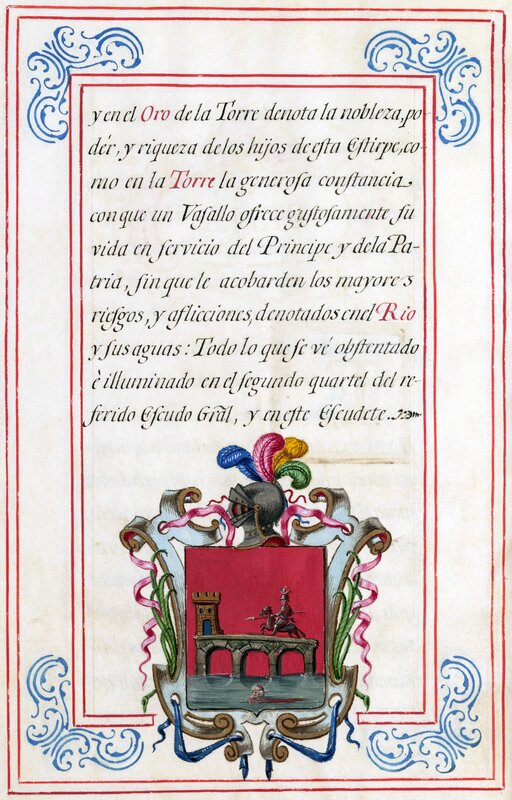 y en el Oro de la Torre denota la nobleza, po-
dér, y riqueza de los hijos de esta Estirpe, co-
mo en la Torre la generosa constancia
con que un Vasallo ofrece gustosamente su
vida en servicio del Principe y de la Pa-
tria, sin que le acobarden los mayores
riesgos, y aflicciones, denotados en el Rio
y sus aguas: Todo lo que se vé obstentado
è illuminado en el segundo quartel del re-
ferido Escudo Grãl, y en este Escudete.